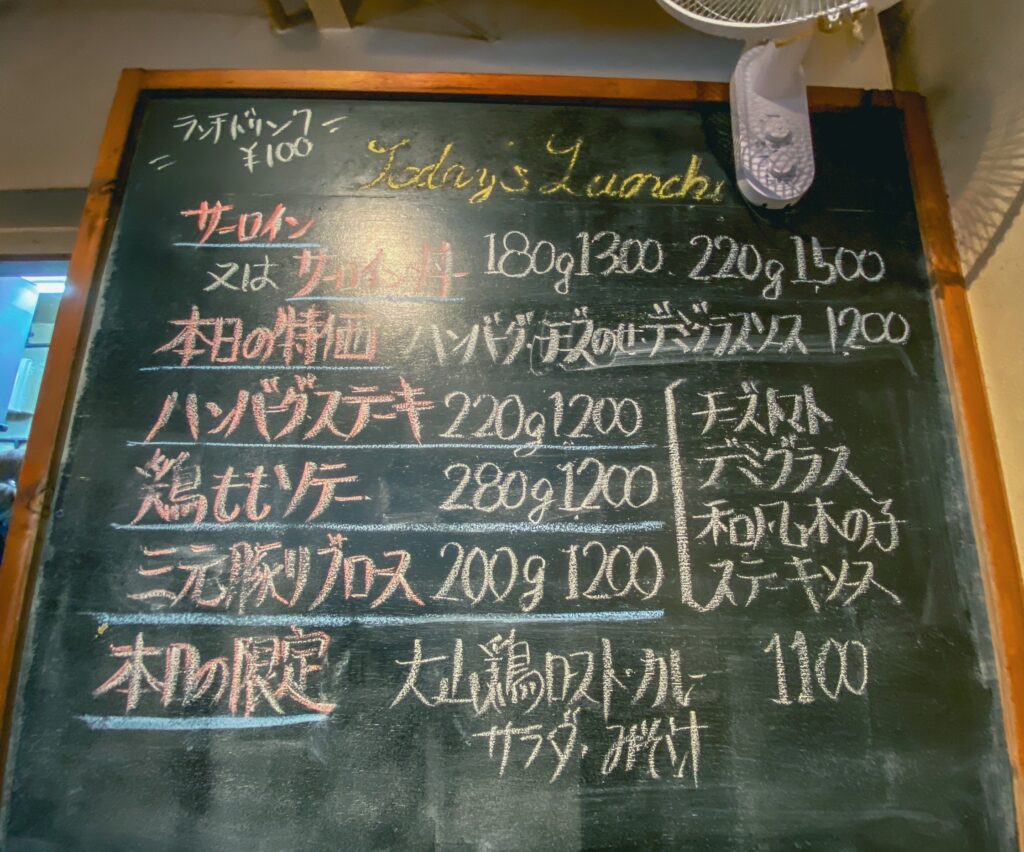 ランチドリンク
¥100
Today's Lunch
サーロイン
又は サーロイン丼 180g1300 220g1500
本日の特価 ハンバーグ・チーズのせ・デミグラスソース 1200
ハンバーグステーキ 220g1200
鶏ももソテー 280g1200
三元豚リブロース 200g1200
チーズトマト
デミグラス
和風木の子
ステーキソース
本日の限定 大山鶏ロースト・カレー 1100
サラダ・みそ汁